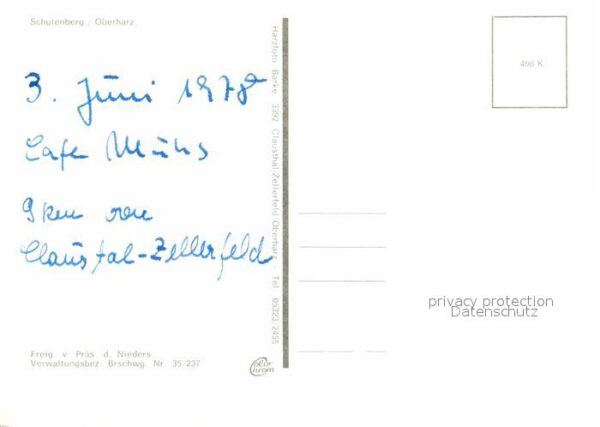 Schulenberg / Oberharz
3. Juni 1978
Cafe Muhs
9 km von
Claustal-Zellerfeld
Freig. v. Präs. d. Nieders.
Verwaltungsbez Brschwg. Nr. 35/237
Harzfoto Barke 3392 Clausthal Zellerfeld Oberharz · Tel. 05323 2455
color chrom
496 K
privacy protection
Datenschutz